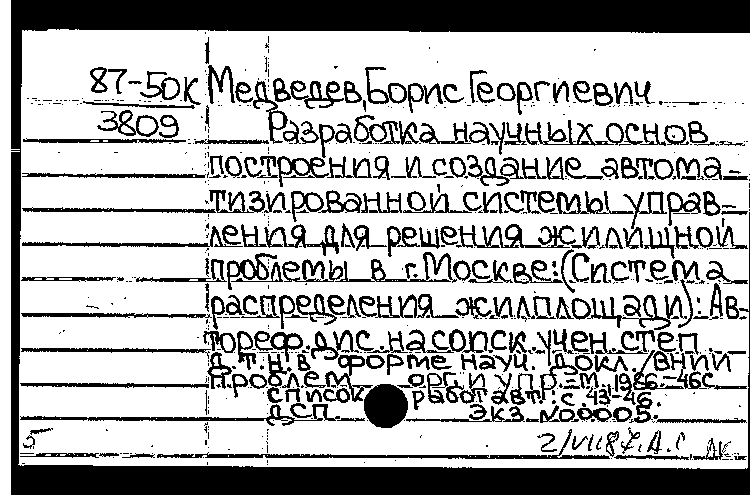 87-50К Медведев, Борис Георгиевич.
3809 Разработка научных основ
построения и создание автома-
тизированной системы управ-
ления для решения жилищной
проблемы в г. Москве: (Система
распределения жилплощади): Ав-
тореф. дис. на соиск. учен. степ.
д.т.н. в форме науч. докл./ВНИИ
проблем орг. и упр. -М, 1986.-46с
список работ авт.: с. 43-46.
ДСП. Экз N00005.
5 2/VII 87. А.С АК